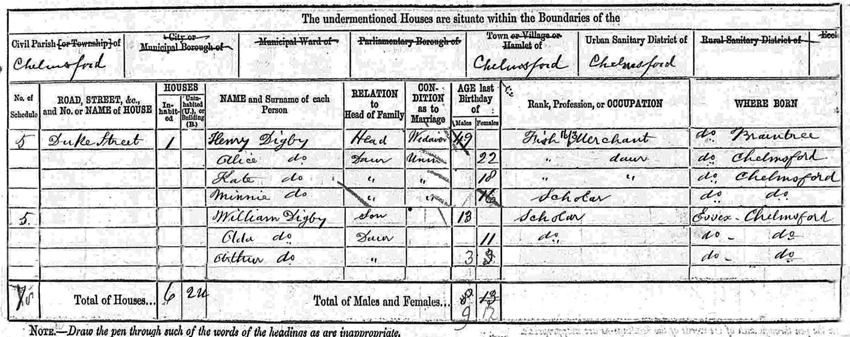 The undermentioned Houses are situate within the Boundaries of the
Civil Parish [or Township] of
City or Municipal Borough of
Municipal Ward of
Parliamentary Borough of
Town or Village or Hamlet of
Urban Sanitary District of
Rural Sanitary District of
Eccl
Chelmsford Chelmsford Chelmsford
No. of Schedule
ROAD, STREET, &c., and No. or NAME of HOUSE
HOUSES
In-habit-ed
Unin-habited (U.), or Building (B.)
NAME and Surname of each Person
RELATION to Head of Family
CON-DITION as to Marriage
AGE last Birthday of
Males Females
Rank, Profession, or OCCUPATION
WHERE BORN
5 Duke Street 1 Henry Digby Head Widower 49 Fish Merchant do Braintree
Alice do Daur Unm 22 " daur do Chelmsford
Kate do " " 18 " " do Chelmsford
Minnie do " " 16 Scholar do do
5 William Digby Son 13 Scholar Essex - Chelmsford
Alda do Daur 11 do do - do
Arthur do " 3 3 do - do
Total of Houses... 6 2U Total of Males and Females... 8 13
9 12
NOTE.—Draw the pen through such of the words of the headings as are inappropriate.